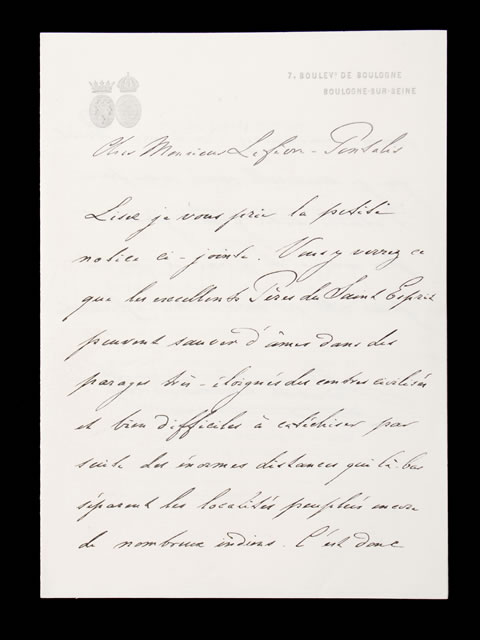 7, BOULEVᵈ DE BOULOGNE
BOULOGNE-SUR-SEINE
Cher Monsieur Lefèvre-Pontalis
Lisez je vous prie la petite
notice ci-jointe. Vous y verrez ce
que les excellents Pères du Saint Esprit
peuvent sauver d'âmes dans des
parages très-éloignés des centres civilisés
et bien difficiles à catéchiser par
suite des énormes distances qui là-bas
séparent les localités peuplées encore
de nombreux indiens. C'est donc